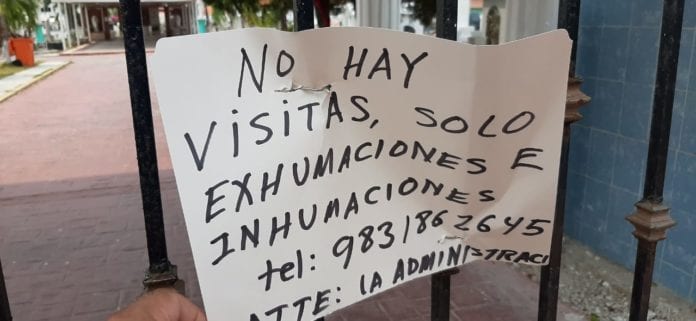 NO HAY
VISITAS, SOLO
EXHUMACIONES E
INHUMACIONES
tel: 9831862645
ATTE: LA ADMINISTRACI